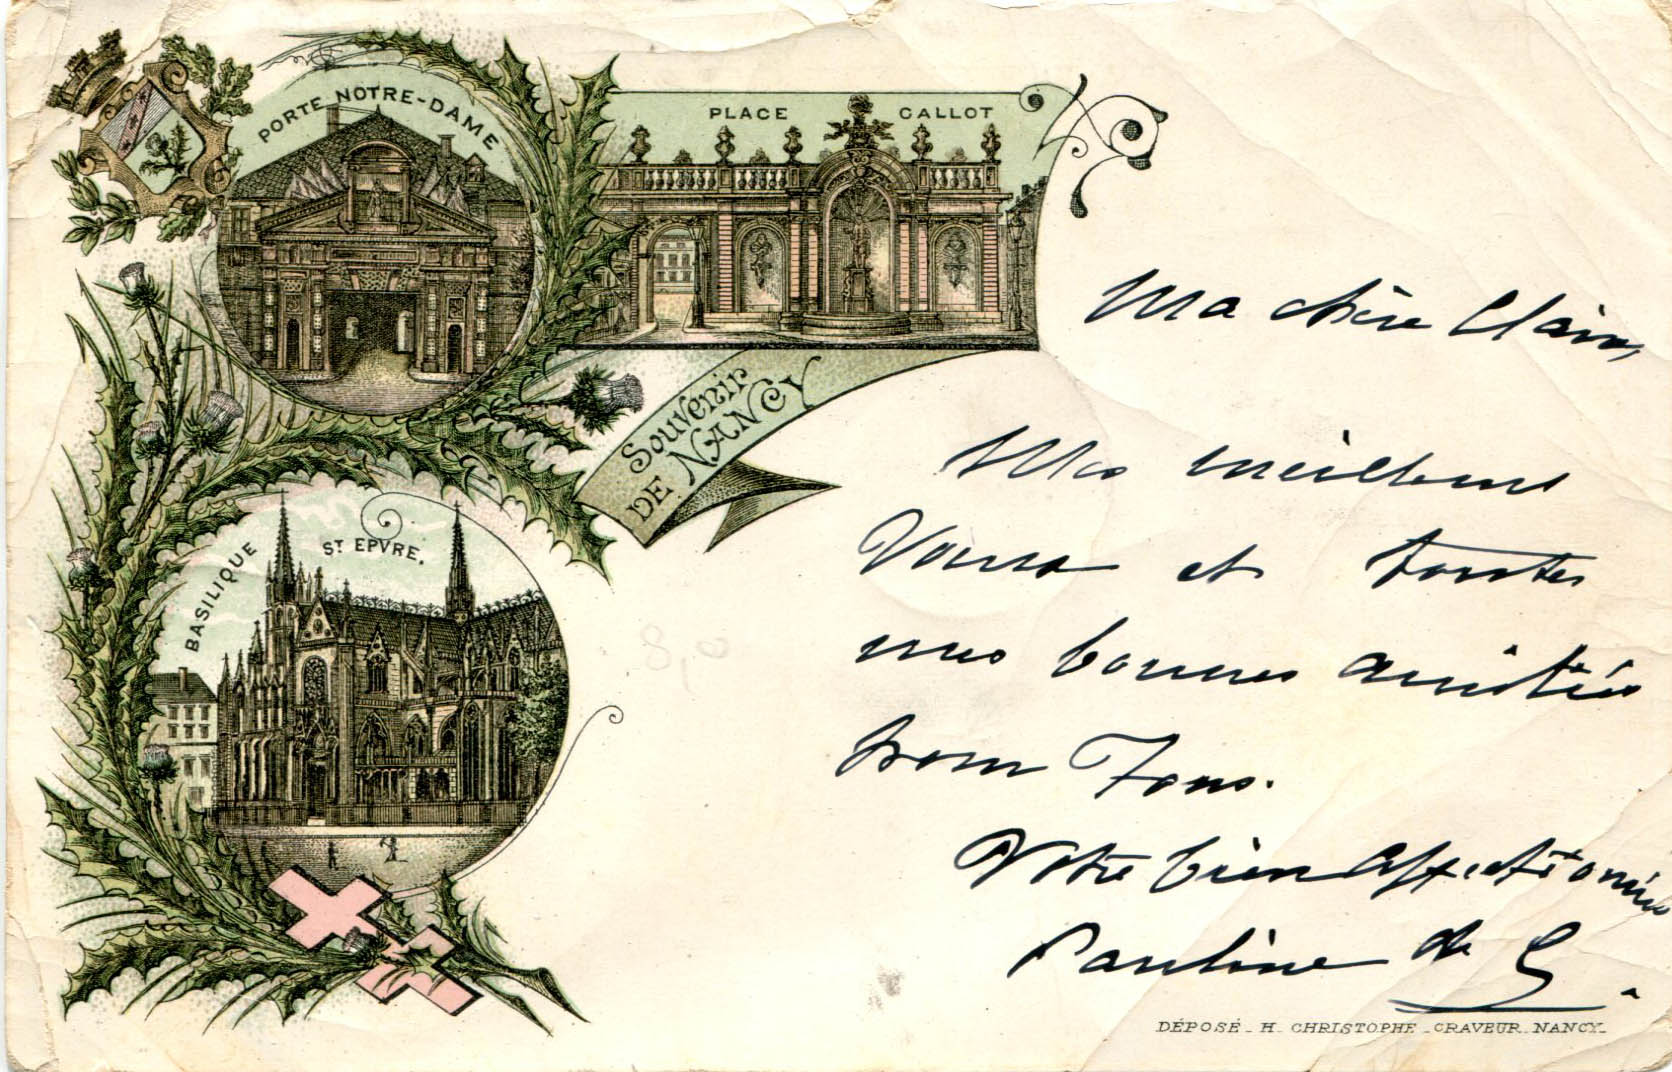 PORTE NOTRE-DAME
PLACE CALLOT
Souvenir
DE NANCY
BASILIQUE ST EPVRE.
Ma chère Claire,
Mes meilleurs
Voeux et toutes
mes bonnes amitiés
pour Tous.
Votre bien affectionnée
Pauline de G.
DÉPOSÉ _ H. CHRISTOPHE _ GRAVEUR _ NANCY _